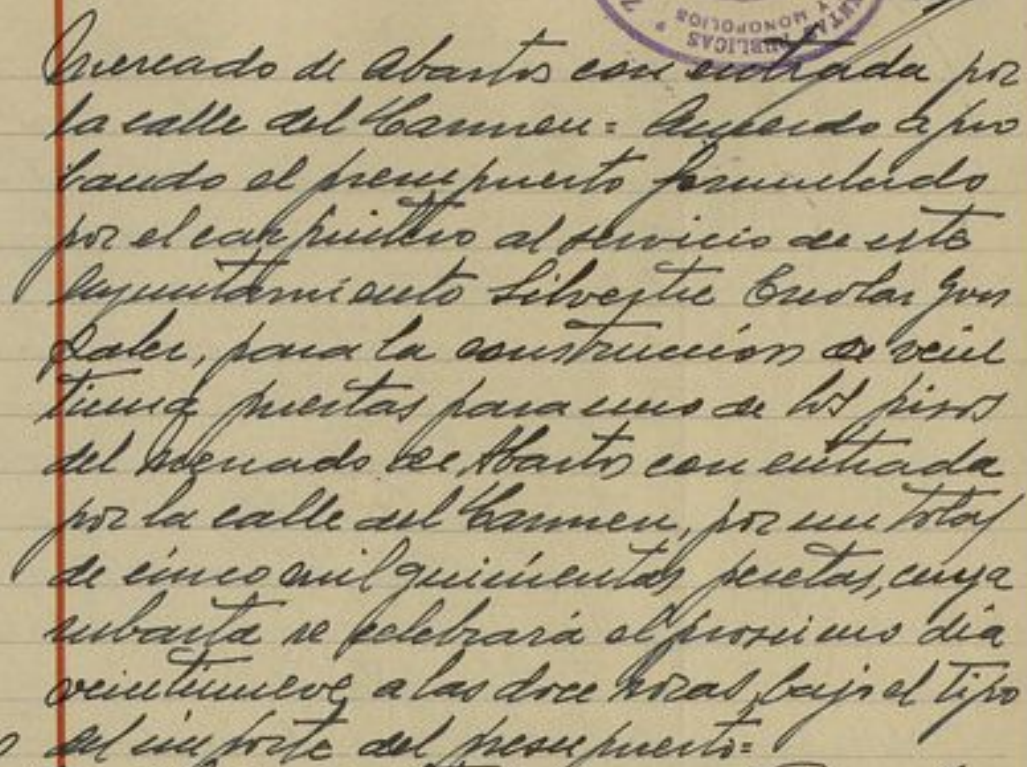 PUBLICAS
Y MONOPOLIOS
Mercado de Abastos con entrada por
la calle del Carmen = Acuerdo apro
bando el presupuesto formulado
por el carpintero al servicio de este
Ayuntamiento Silvestre Escolar Gon
zalez, para la construcción de vein
tiuna puertas para uno de los pisos
del mercado de Abastos con entrada
por la calle del Carmen, por un total
de cinco mil quinientas pesetas, cuya
subasta se celebrará el proximo dia
veintinueve a las doce horas, bajo el tipo
del importe del presupuesto =